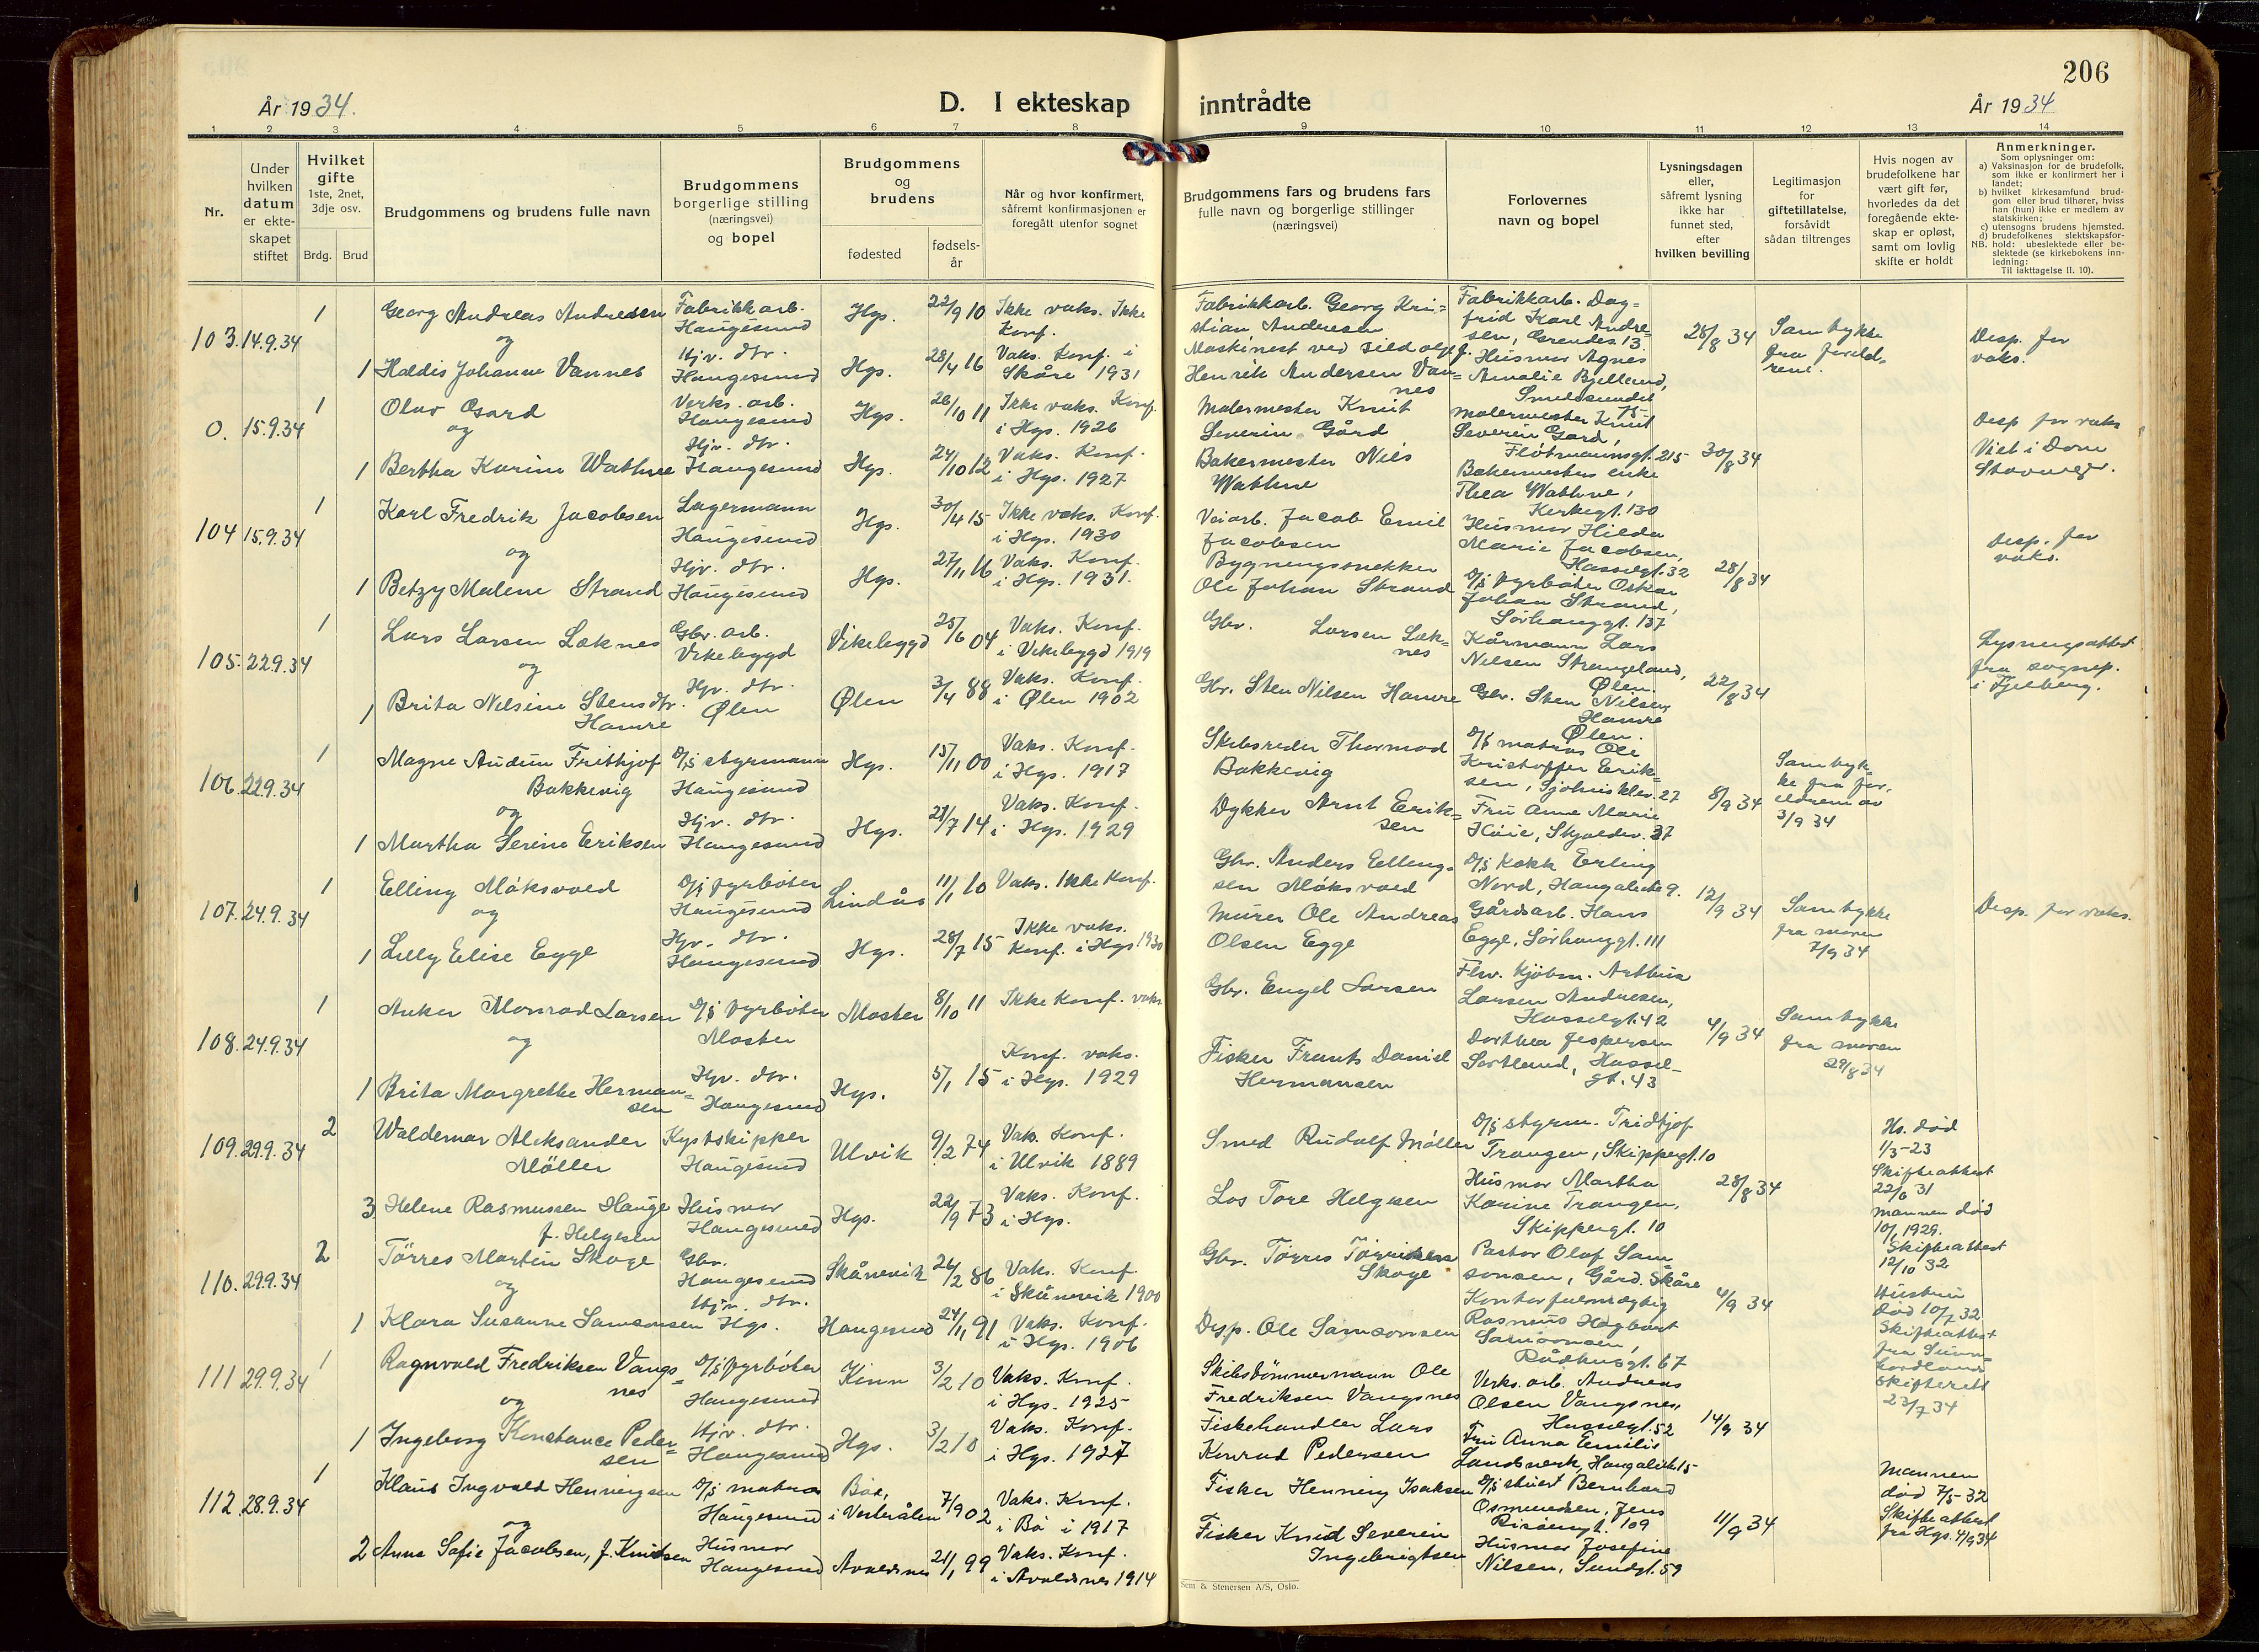 206
År 1934.
D. I ekteskap
inntrådte
År 1934
1 2 3 4 5 6 7 8 9 10 11 12 13 14
Nr.
Under
hvilken
datum
er ekte-
skapet
stiftet
Hvilket
gifte
1ste, 2net,
3dje osv.
Brdg. Brud
Brudgommens og brudens fulle navn
Brudgommens
borgerlige stilling
(næringsvei)
og bopel
Brudgommens
og
brudens
fødested
fødsels-
år
Når og hvor konfirmert,
såfremt konfirmasjonen er
foregått utenfor sognet
Brudgommens fars og brudens fars
fulle navn og borgerlige stillinger
(næringsvei)
Forlovernes
navn og bopel
Lysningsdagen
eller,
såfremt lysning
ikke har
funnet sted,
efter
hvilken bevilling
Legitimasjon
for
giftetillatelse,
forsåvidt
sådan tiltrenges
Hvis nogen av
brudefolkene har
vært gift før,
hvorledes da det
foregående ekte-
skap er opløst,
samt om lovlig
skifte er holdt
Anmerkninger.
Som oplysninger om:
a) Vaksinasjon for de brudefolk,
som ikke er konfirmert her i
landet;
b) hvilket kirkesamfund brud-
gom eller brud tilhører, hviss
han (hun) ikke er medlem av
statskirken;
c) utensogns brudens hjemsted.
d) brudefolkenes slektskapsfor-
NB. hold: ubeslektede eller be-
slektede (se kirkebokens inn-
ledning:
Til iakttagelse II. 10).
103. 14.9.34
1
Georg Andreas Andresen
og
1 Haldis Johanne Vannes
Fabrikkarb.
Haugesund
Hjv. dtr.
Haugesund
Hgs.
Hgs.
22/9 10
28/4 16
Ikke vaks. Ikke
Konf.
Vaks. Konf. i
Skåre 1931
Fabrikkarb. Georg Kri-
stian Andresen
Maskinest ved sildolje f.
Henrik Andersen Van-
nes
Fabrikkarb. Dag-
frid Karl Andre-
sen, Grendes. 13
Husmor Agnes
Amalie Bjelland,
Smedasundet
75
28/8 34
Samtykke
fra foreld-
rene.
Desp. for
vaks.
0. 15.9.34
1
Olav Gard
og
1 Bertha Karine Wathne
Verks. arb.
Haugesund
Hjv. dtr.
Haugesund
Hgs.
Hgs.
26/10 11
24/10 12
Ikke vaks. Konf.
i Hgs. 1926
Vaks. Konf.
i Hgs. 1927
Malermester Knut
Severin Gård
Bakermester Nils
Wathne
Malermester Knut
Severin Gard,
Fløtmannsgt. 215
Bakermesters enke
Thea Wathne,
Kirkegt. 130
30/8 34
Desp for vaks
Viet i Dom
Stavanger.
104 15.9.34
1
Karl Fredrik Jacobsen
og
1 Betzy Malene Strand
Lagermann
Haugesund
Hjv. dtr.
Haugesund
Hgs.
Hgs.
30/4 15
27/11 16
Ikke vaks. Konf.
i Hgs. 1930
Vaks. Konf.
i Hgs. 1931.
Veiarb. Jacob Emil
Jacobsen
Bygningssnekker
Ole Johan Strand
Husmor Hilda
Marie Jacobsen,
Hasselgt. 32
D/s fyrbøter Oskar
Johan Strand,
Sørhauggt. 137
28/8 34
Desp. for
vaks.
105. 22.9.34
1
Lars Larsen Løknes
og
1 Brita Nilsine Stensdtr.
Hamre
Gbr. arb.
Vikebygd
Hjv. dtr.
Ølen
Vikebygd
Ølen
25/6 04
3/4 88
Vaks. Konf.
i Vikebygd 1919
Vaks. Konf.
i Ølen 1902
Gbr. Larsen Løk-
nes
Gbr. Sten Nilsen Hamre
Kårmann Lars
Nilsen Strangeland,
Ølen.
Gbr. Sten Nilsen
Hamre
Ølen.
22/8 34
Lysningsattest
fra sognep.
i Fjelberg.
106. 22.9.34
1
Magne Audun Frithjof
Bakkevig
og
1 Martha Serine Eriksen
D/s styrmann
Haugesund
Hjv. dtr.
Haugesund
Hgs.
Hgs.
15/11 00
21/7 14
Vaks. Konf.
i Hgs. 1917
Vaks. Konf.
i Hgs. 1929
Skibsreder Thormod
Bakkevig
Dykker Arnt Erik-
sen
D/s matros Ole
Kristoffer Erik-
sen, 27
Fru Anna Marie
Høie, Skjoldev. 37
8/9 34
Samtyk-
ke fra for-
eldrene av
3/9 34
107. 24.9.34
1
Elling Møksvold
og
1 Lilly Elise Egge
D/s fyrbøter
Haugesund
Hjv. dtr.
Haugesund
Lindås
Hgs.
11/1 10
28/7 15
Vaks. Ikke Konf.
Ikke vaks.
Konf. i Hgs 1930
Gbr. Anders Elling-
sen Møksvold
Murer Ole Andreas
Olsen Egge
D/s Kokk Erling
Nord, Haugalien 9.
Gårdsarb. Hans
Egge, Sørhauggt. 111
12/9 34
Samtykke
fra moren
7/9 34
Desp. for vaks.
108. 24.9.34
1
Anker Monrad Larsen
og
1 Brita Margrethe Herman-
sen
D/s fyrbøter
Moster
Hjv. dtr.
Haugesund
Moster
Hgs.
8/10 11
5/1 15
Ikke Konf. vaks
Konf. vaks.
i Hgs. 1929
Gbr. Engel Larsen
Fisker Frants Daniel
Hermansen
Flv. Kjøbm. Arthur
Larsen Andresen,
Hasselgt. 42
Dorthea Jespersen
Sortland, Hassel-
gt. 43
4/9 34
Samtykke
fra moren
29/8 34
109. 29.9.34
2
Waldemar Aleksander
Möller
3 Helene Rasmussen Hauge
f. Helgesen
Kystskipper
Haugesund
Husmor
Haugesund
Ulvik
Hgs.
9/2 74
22/9 73
Vaks. Konf.
i Ulvik 1889
Vaks. Konf.
i Hgs.
Smed Rudolf Möller
Los Tore Helgesen
D/s styrm. Fridtjof
Trangen, Skippergt. 10
Husmor Martha
Karine Trangen,
Skippergt. 10
28/8 34
Hs. død
1/3-23
Skifteattest
22/6 31
Mannen død
10/1 1929.
Skifteattest
12/10 32
110. 29.9.34
2
Tørres Martin Skoge
og
1 Klara Susanne Samsonsen
Gbr.
Haugesund
Hjv. dtr.
Hgs.
Skånevik
Haugesund
26/2 86
24/11 91
Vaks. Konf.
i Skånevik 1900
Vaks. Konf.
i Hgs. 1906
Gbr. Tørris Tørrisen
Skoge
Desp. Ole Samsonsen
Pastor Olaf Sam-
sonsen, Gård. Skåre
Kontorfuldmægtig
Rasmus Hagbart
Samsonsen,
Rådhusgt. 67
4/9 34
Hustru
død 10/7 32
Skifteattest
fra Sunn-
hordland
skifterett
23/7 34
111 29.9.34
1
Ragnvald Fredriksen Vangs-
nes
og
1 Ingeborg Konstance Peder-
sen
D/s fyrbøter
Haugesund
Hjv. dtr.
Haugesund
Kinn
Hgs.
3/2 10
3/2 10
Vaks. Konf.
i Hgs. 1925
Vaks. Konf.
i Hgs. 1927
Skibstømmermann Ole
Fredriksen Vangsnes
Fiskehandler Lars
Konrad Pedersen
Verks. arb. Andreas
Olsen Vangsnes,
Hasselgt. 52
Fru Anna Emilie
Landsverk, Haugalien 15
14/9 34
112. 28.9.34
1
Klaus Ingvald Henningsen
og
2 Anna Sofie Jacobsen, f. Knudsen
D/s matros
Haugesund
Husmor
Haugesund
Bø,
i Vesterålen
Avaldsnes
7/9 02
21/1 99
Vaks. Konf.
i Bø i 1917
Vaks. Konf.
i Avaldsnes 1914
Fisker Henning Isaksen
Fisker Knud Severin
Ingebrigtsen
D/s stuert Bernhard
Osmundsen, Jens
Risøensgt. 109
Husmor Josefine
Nilsen, Sundgt. 59
11/9 34
Mannen
død 7/5-32
Skifteattest
fra Hgs. 4/9 34
Sem & Stenersen A/S, Oslo.